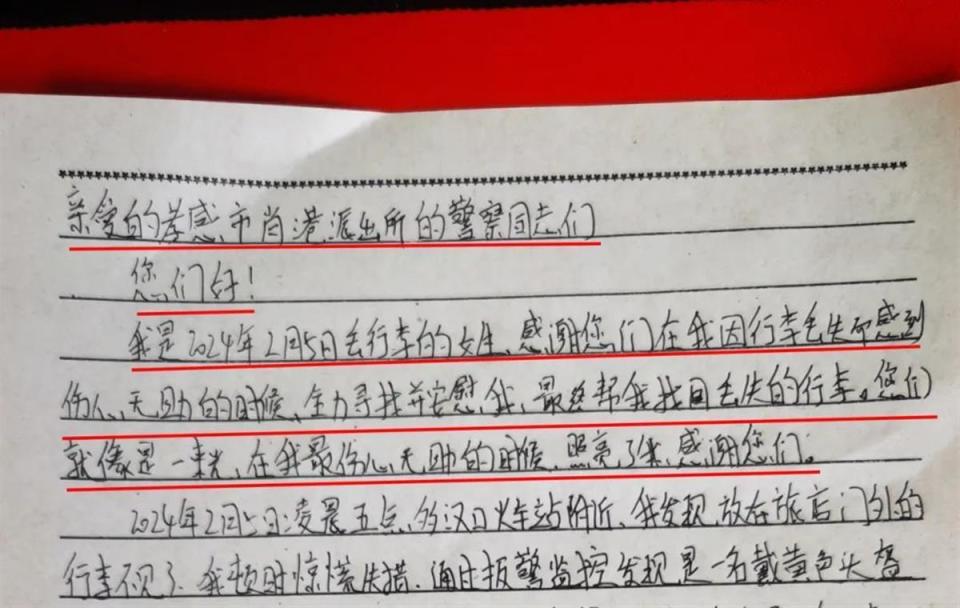 亲爱的孝感市肖港派出所的警察同志们
您们好！
我是2024年2月5日丢行李的女生、感谢您们在我因行李丢失而感到
伤心、无助的时候、全力寻找并安慰我、最终帮我找回丢失的行李。您们
就像是一束光、在我最伤心无助的时候、照亮了我、感谢您们。
2024年2月5日凌晨五点、的汉口火车站附近、我发现放在旅店门外的
行李不见了、我顿时惊慌失措、通过报警监控发现是一名戴黄色头盔